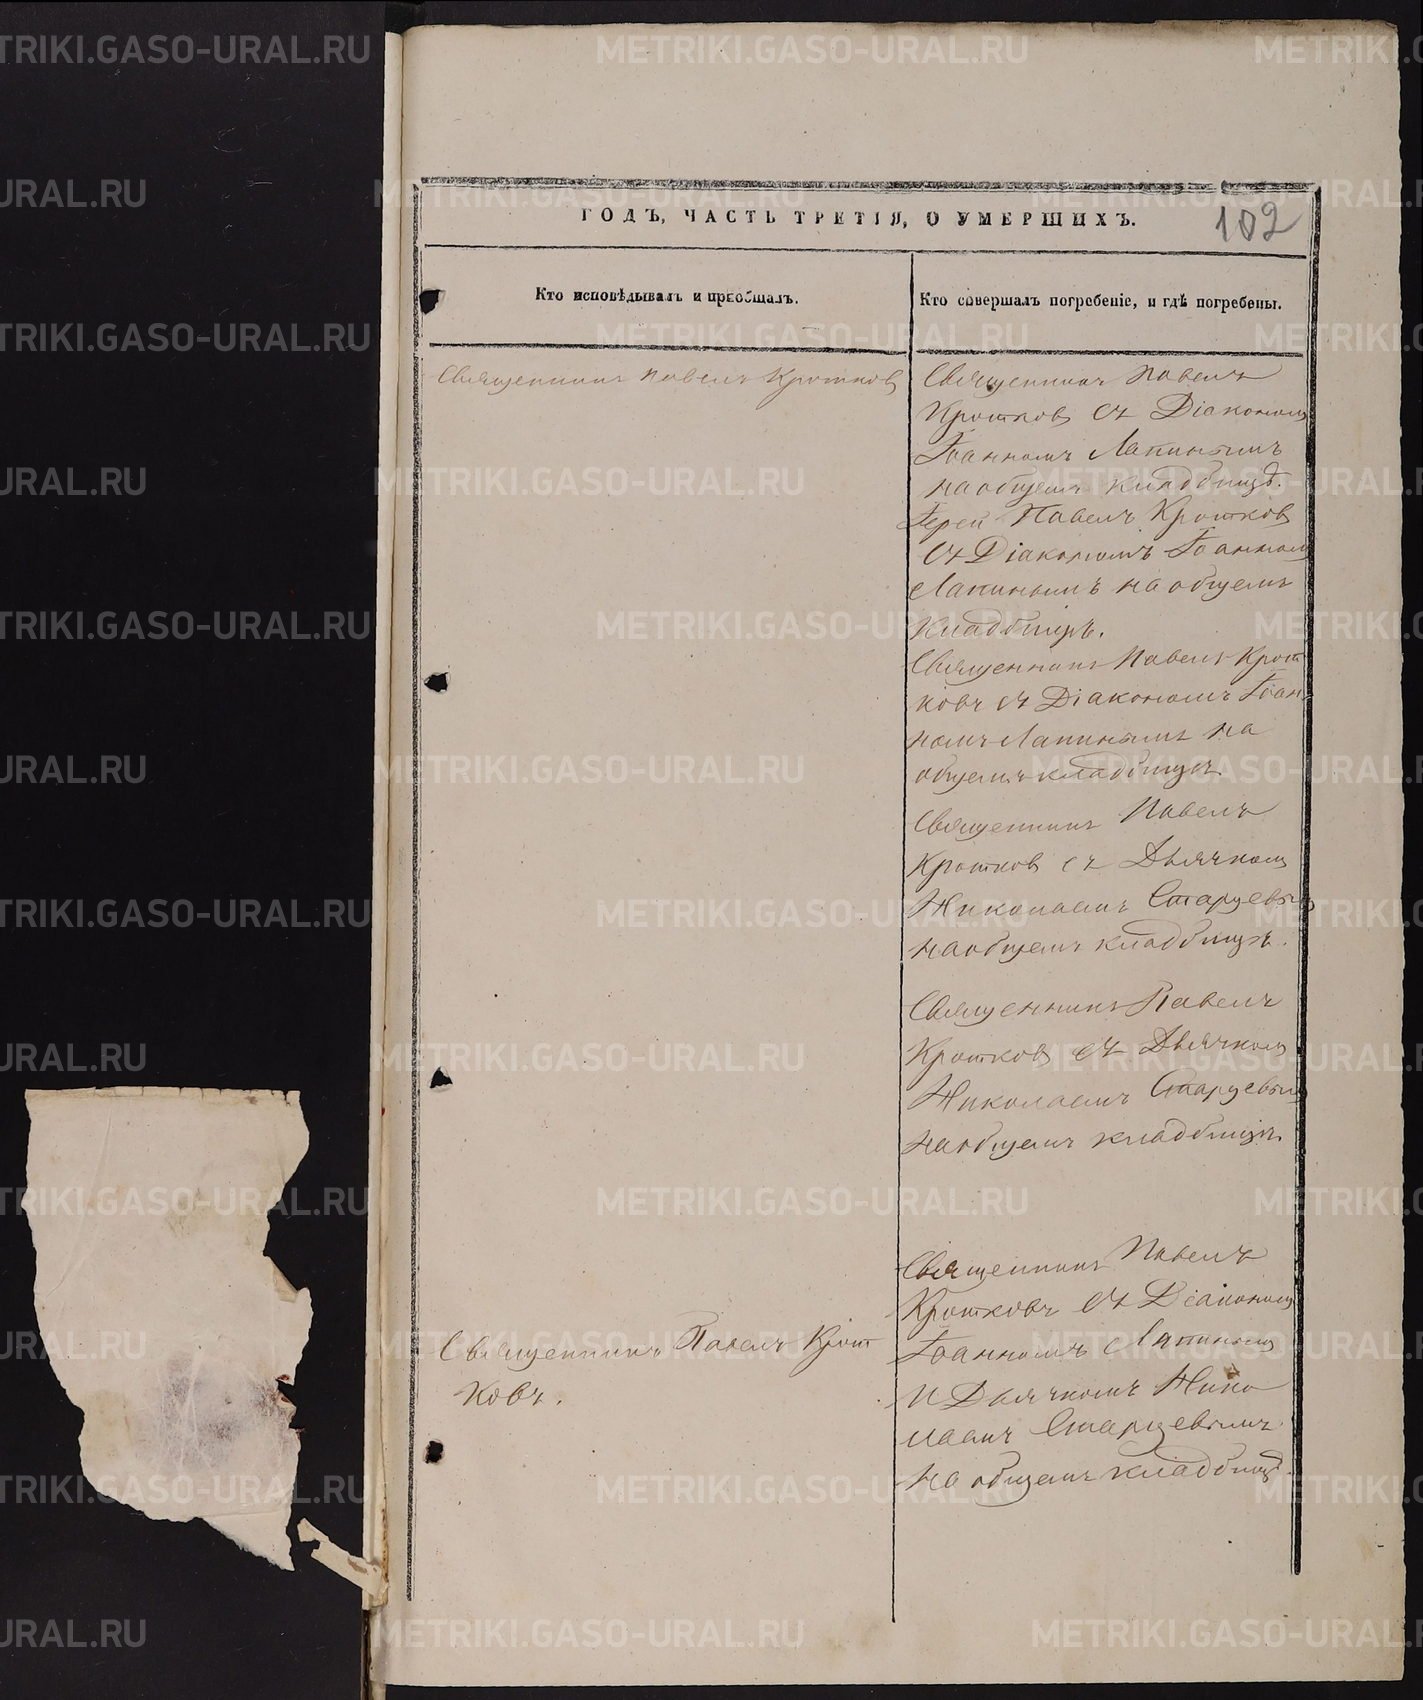 ГОДЪ, ЧАСТЬ ТРЕТІЯ, О УМЕРШИХЪ.
102
Кто исповѣдывалъ и пріобщалъ.
Кто совершалъ погребеніе, и гдѣ погребены.
Священникъ Павелъ Кротковъ
Священникъ Павелъ
Кротковъ съ Діакономъ
Іоанномъ Лапинымъ
на общемъ кладбищѣ.
Іерей Павелъ Кротковъ
съ Діакономъ Іоанномъ
Лапинымъ на общемъ
кладбищѣ.
Священникъ Павелъ Крот
ковъ съ Діакономъ Іоан
номъ Лапинымъ на
общемъ кладбищѣ
Священникъ Павелъ
Кротковъ съ Дьячкомъ
Николаемъ Старцевымъ
на общемъ кладбищѣ.
Священникъ Павелъ
Кротковъ съ Дьячкомъ
Николаемъ Старцевымъ
на общемъ кладбищѣ.
Священникъ Павелъ Крот
ковъ.
Священникъ Павелъ
Кротковъ съ Діакономъ
Іоанномъ Лапинымъ
и Дьячкомъ Нико
лаемъ Старцевымъ
на общемъ кладбищѣ.
METRIKI.GASO-URAL.RU